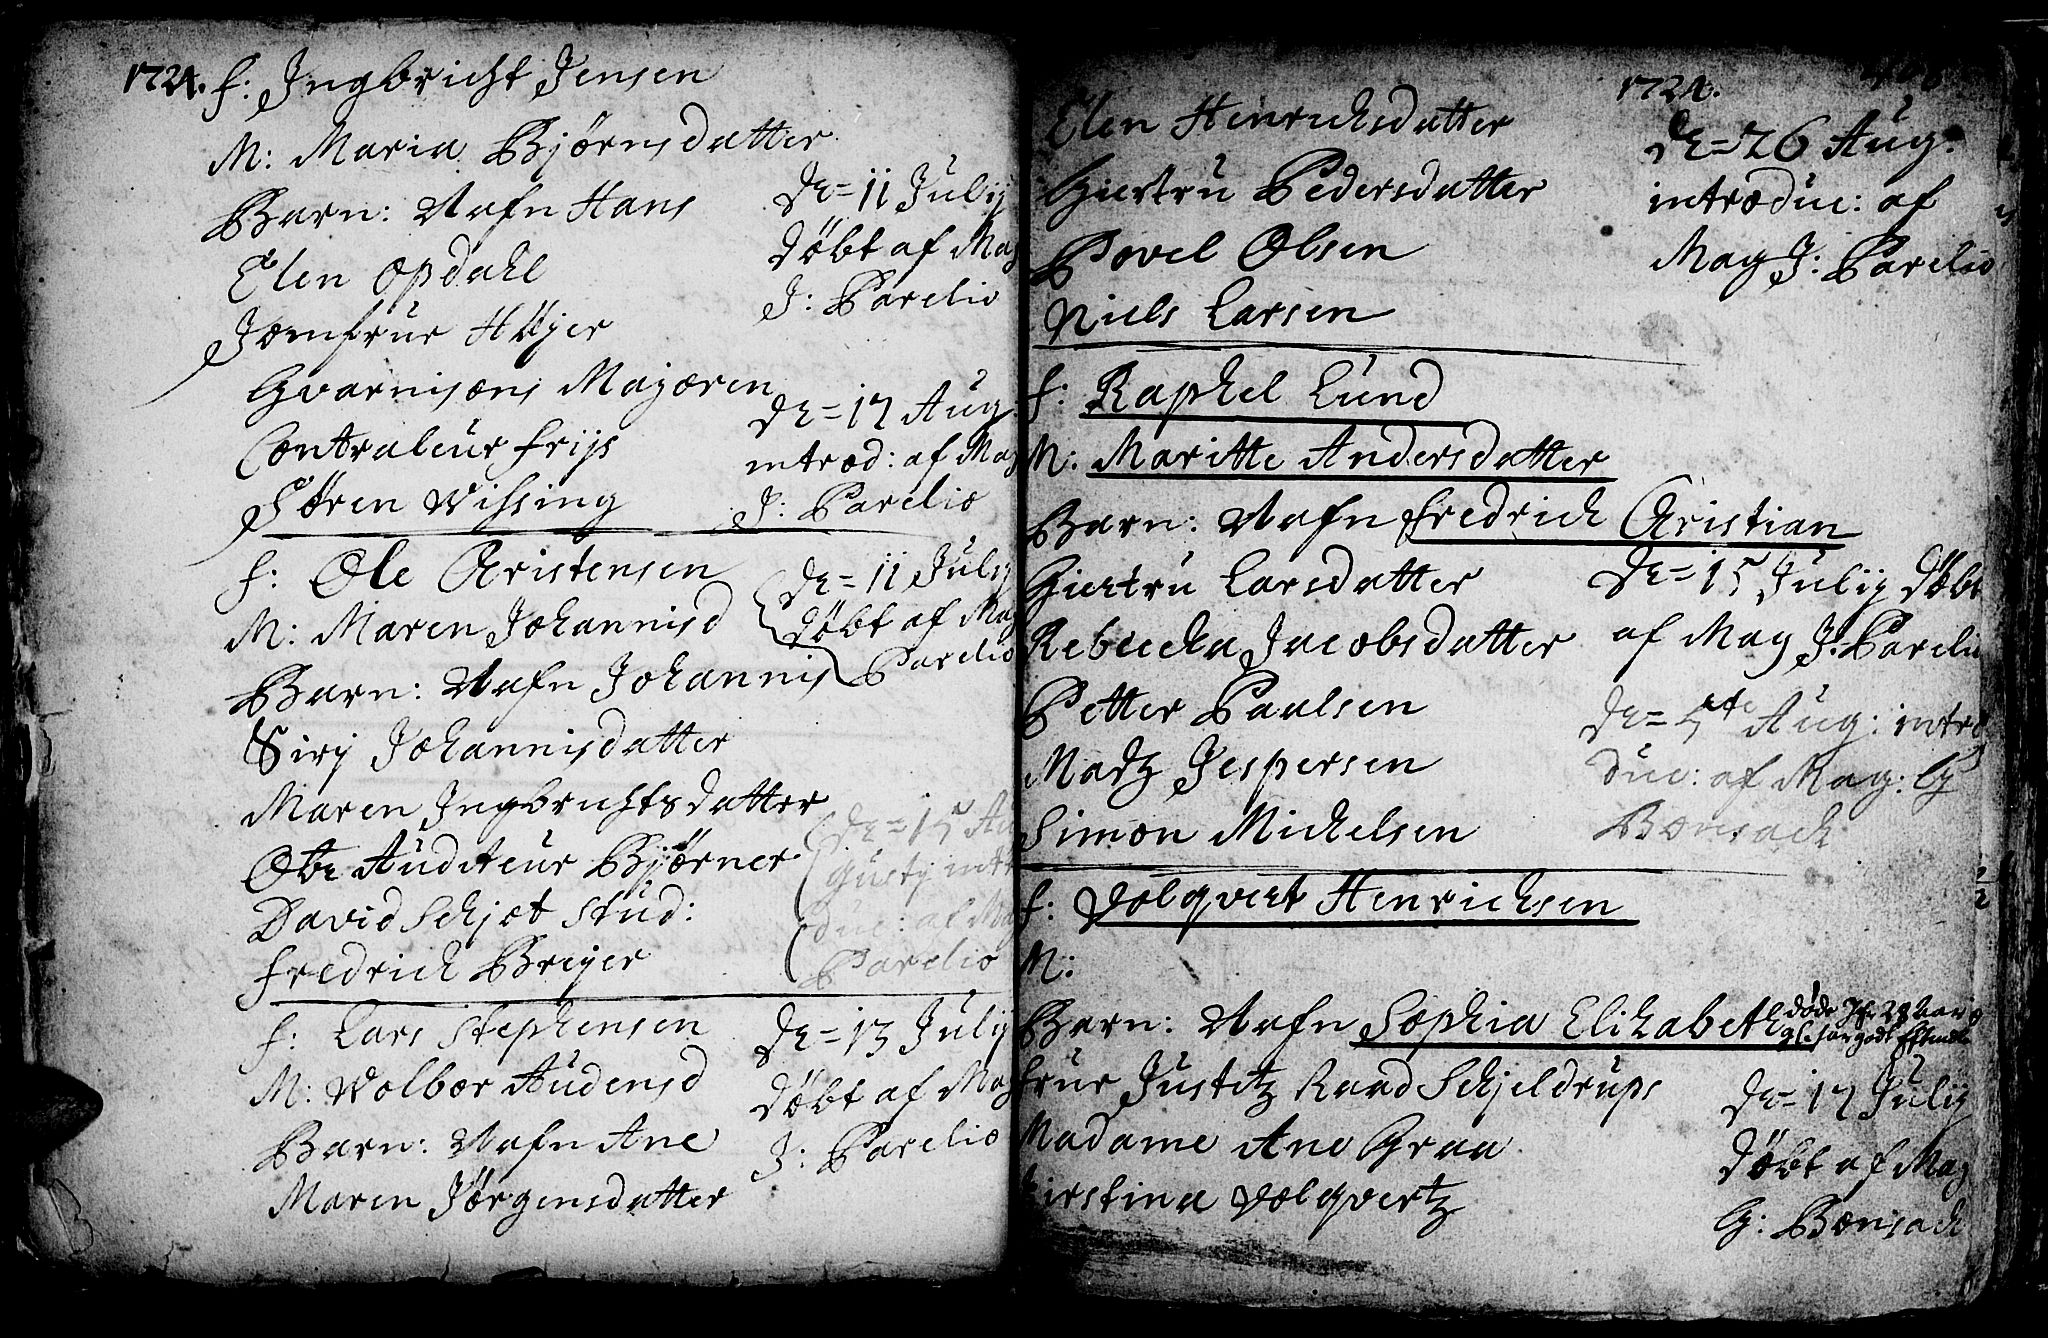 1724. f: Ingbricht Jensen
M: Maria Bjørnsdatter
Barn: Nafn Hans
Elen Opdahl
Jomfrue Høyer
Gvarnisons Majoren
Contraleur Frijs
Søren Wissing
d 11 Julij
døbt af Mag
J: Parelio
d 17 Aug
introd: af Mag
J: Parelio
f: Ole Christensen
M: Maren Johannisd
Barn: Nafn Johannis
Sirj Johannisdatter
Maren Ingbrichtsdatter
Obr Auditeur Bjørner
David Schjøt Stud:
Fredrich Breyer
d 11 Julij
døbt af Mag
Parelio
d 15 Au
gustj intr
duc: af Mag
Parelio
f: Lars Stephensen
M: Wolbor Audensd
Barn: Nafn Ane
Maren Jørgensdatter
d 13 Julij
døbt af Mag
J: Parelio
1724.
Elen Henrichsdatter
Giertru Pedersdatter
Povel Olsen
Niels Larsen
d 26 Aug:
introduc: af
Mag J: Parelio
f: Raphel Lund
M: Maritte Andersdatter
Barn: Nafn Fredrich Christian
Giertru Larsdatter
Rebecka Jacobsdatter
Petter Paulsen
Madz Jespersen
Simon Michelsen
d 15 Julij døbt
af Mag J: Parelio
d 5te Aug: intro
duc: af Mag: G
Bonsach
f: Volqvert Henrichsen
M:
Barn: Nafn Sophia Elizabeth døde
Frue Justitz Raad Schjeldrups
Madame Ane Graa
Kirstina Volqvertz
d 17 Julij
døbt af Mag
G: Bonsach